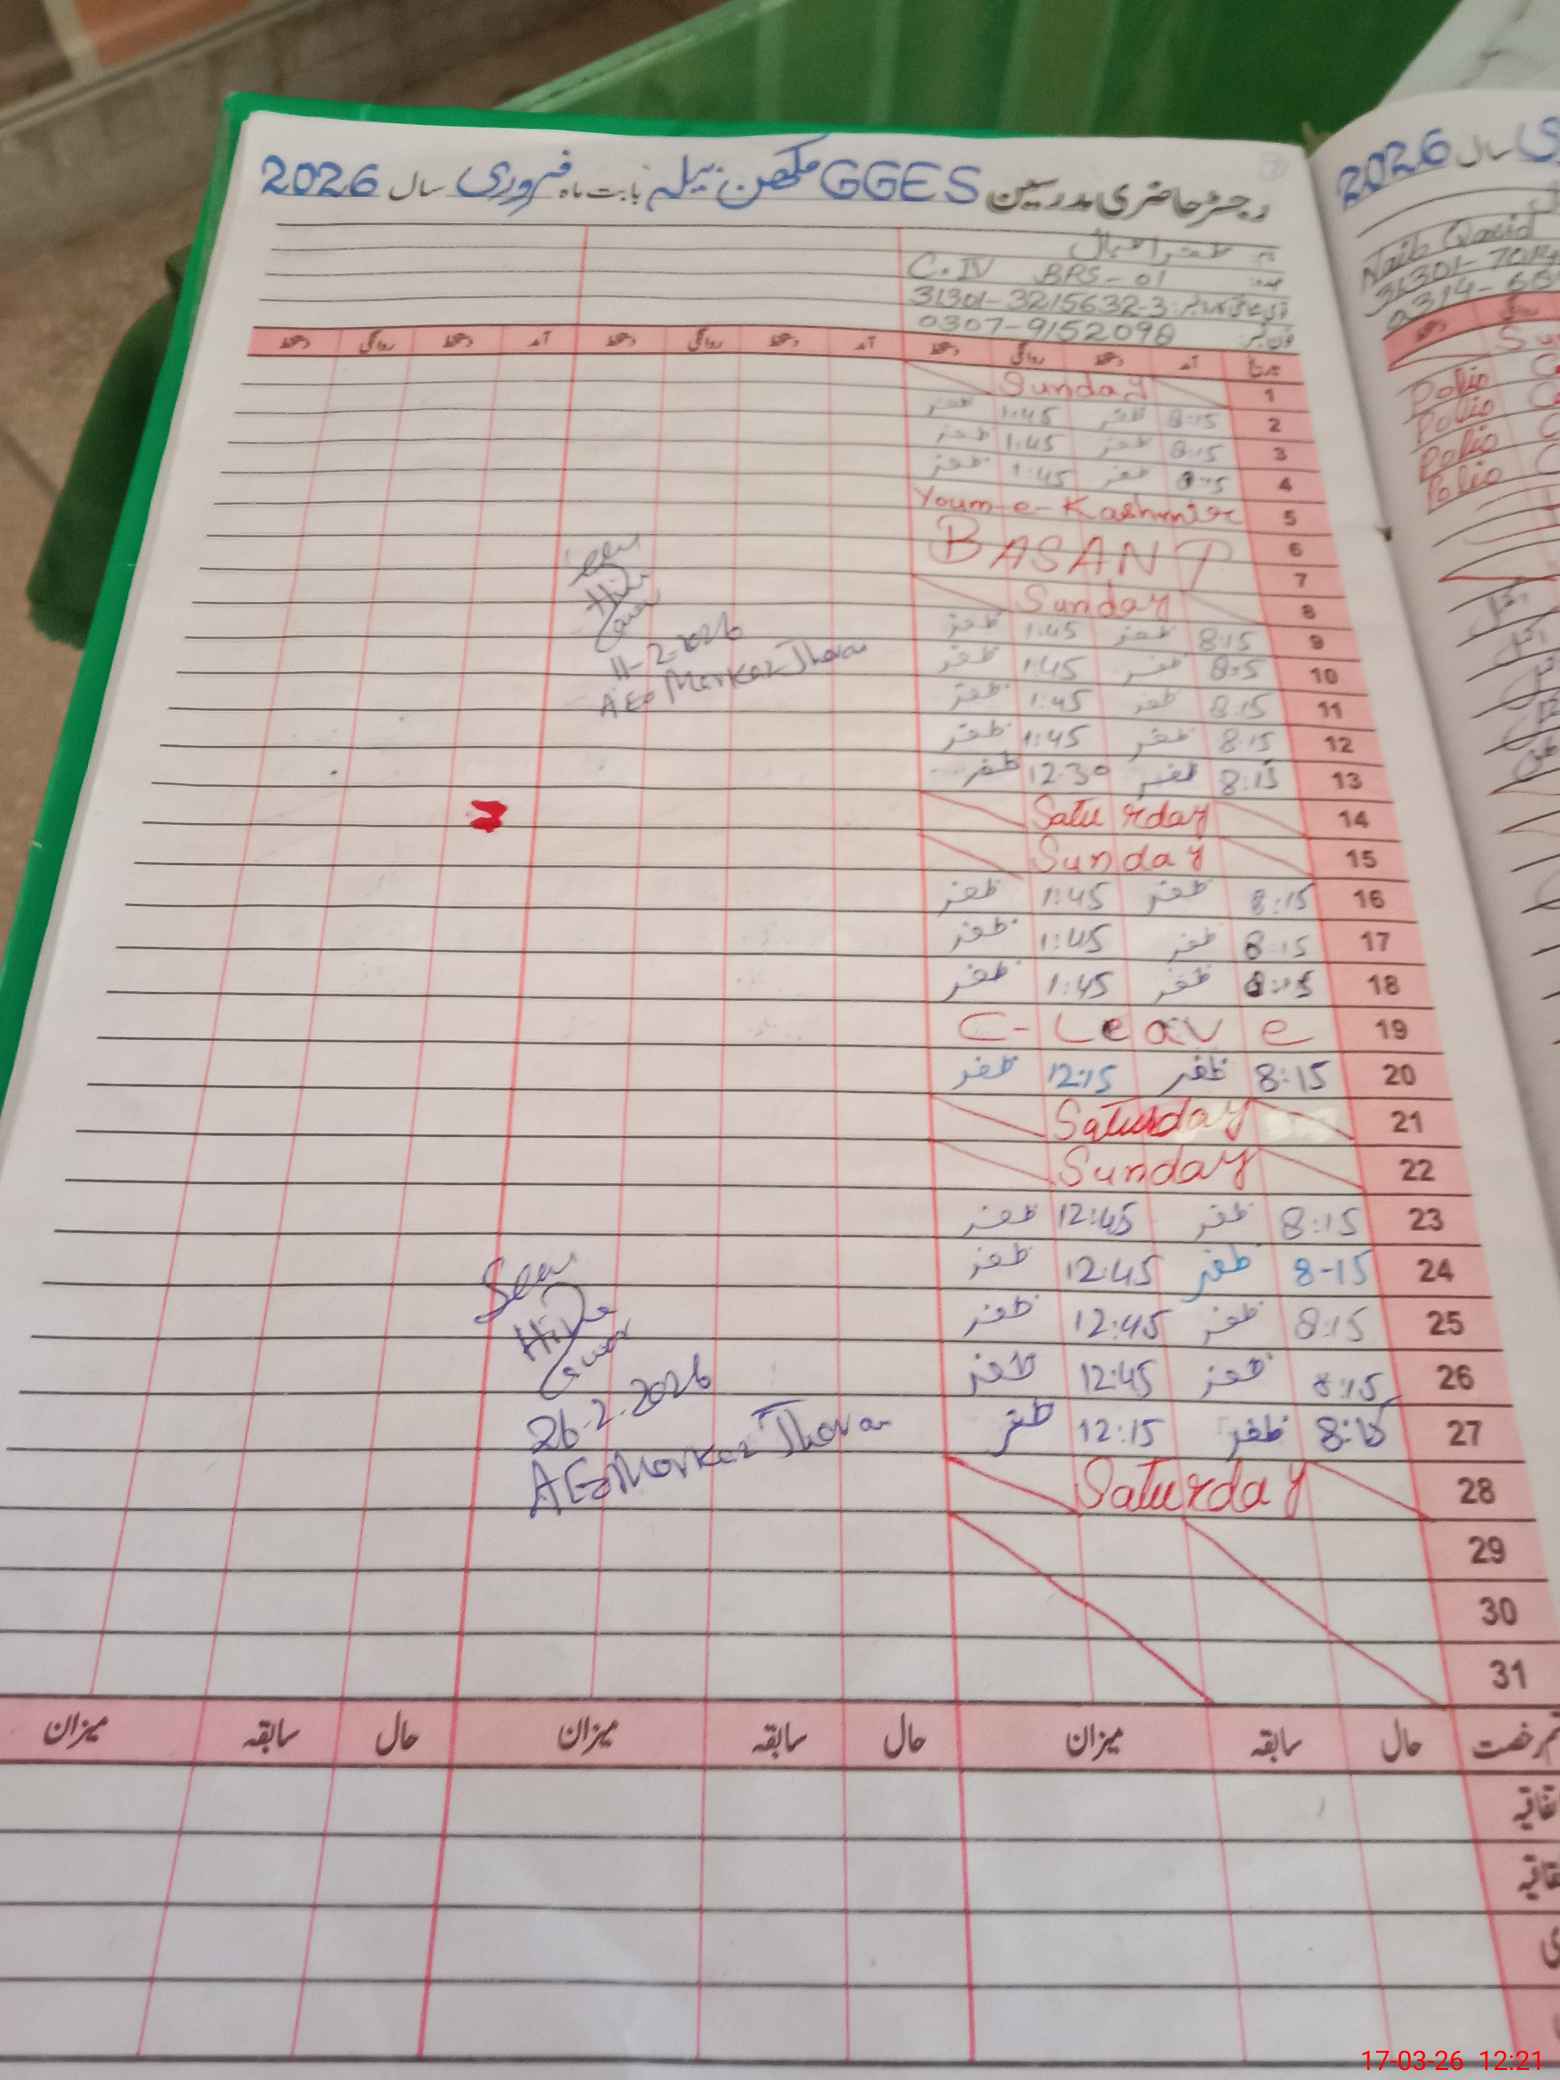 رجسٹر حاضری مدرسین GGES مکھن بیلہ بابت ماہ فروری سال 2026
نام: ظفر اقبال
عہدہ: C.IV BRS-01
31301-3215632-3
فون نمبر: 0307-9152098
تاریخ آمد دستخط روانگی دستخط آمد دستخط روانگی دستخط آمد دستخط روانگی دستخط
1 Sunday
2 8:15 ظفر 1:45 ظفر
3 8:15 ظفر 1:45 ظفر
4 8:15 ظفر 1:45 ظفر
5 Youm-e-Kashmir
6 BASANT
7
8 Sunday
9 8:15 ظفر 1:45 ظفر
10 8:15 ظفر 1:45 ظفر
11 8:15 ظفر 1:45 ظفر
12 8:15 ظفر 1:45 ظفر
13 8:15 ظفر 12:30 ظفر
14 Saturday
15 Sunday
16 8:15 ظفر 1:45 ظفر
17 8:15 ظفر 1:45 ظفر
18 8:15 ظفر 1:45 ظفر
19 C-Leave
20 8:15 ظفر 12:15 ظفر
21 Saturday
22 Sunday
23 8:15 ظفر 12:45 ظفر
24 8-15 ظفر 12:45 ظفر
25 8:15 ظفر 12:45 ظفر
26 8:15 ظفر 12:45 ظفر
27 8:15 ظفر 12:15 ظفر
28 Saturday
29
30
31
Seen
11-2-2026
AEO Markaz
Seen
26-2-2026
AEO Markaz
رخصت حال سابقہ میزان حال سابقہ میزان حال سابقہ میزان
2026 سال
Naib Qasid
31301-
0314-
Polio
Polio
Polio
Polio
17-03-26 12:21